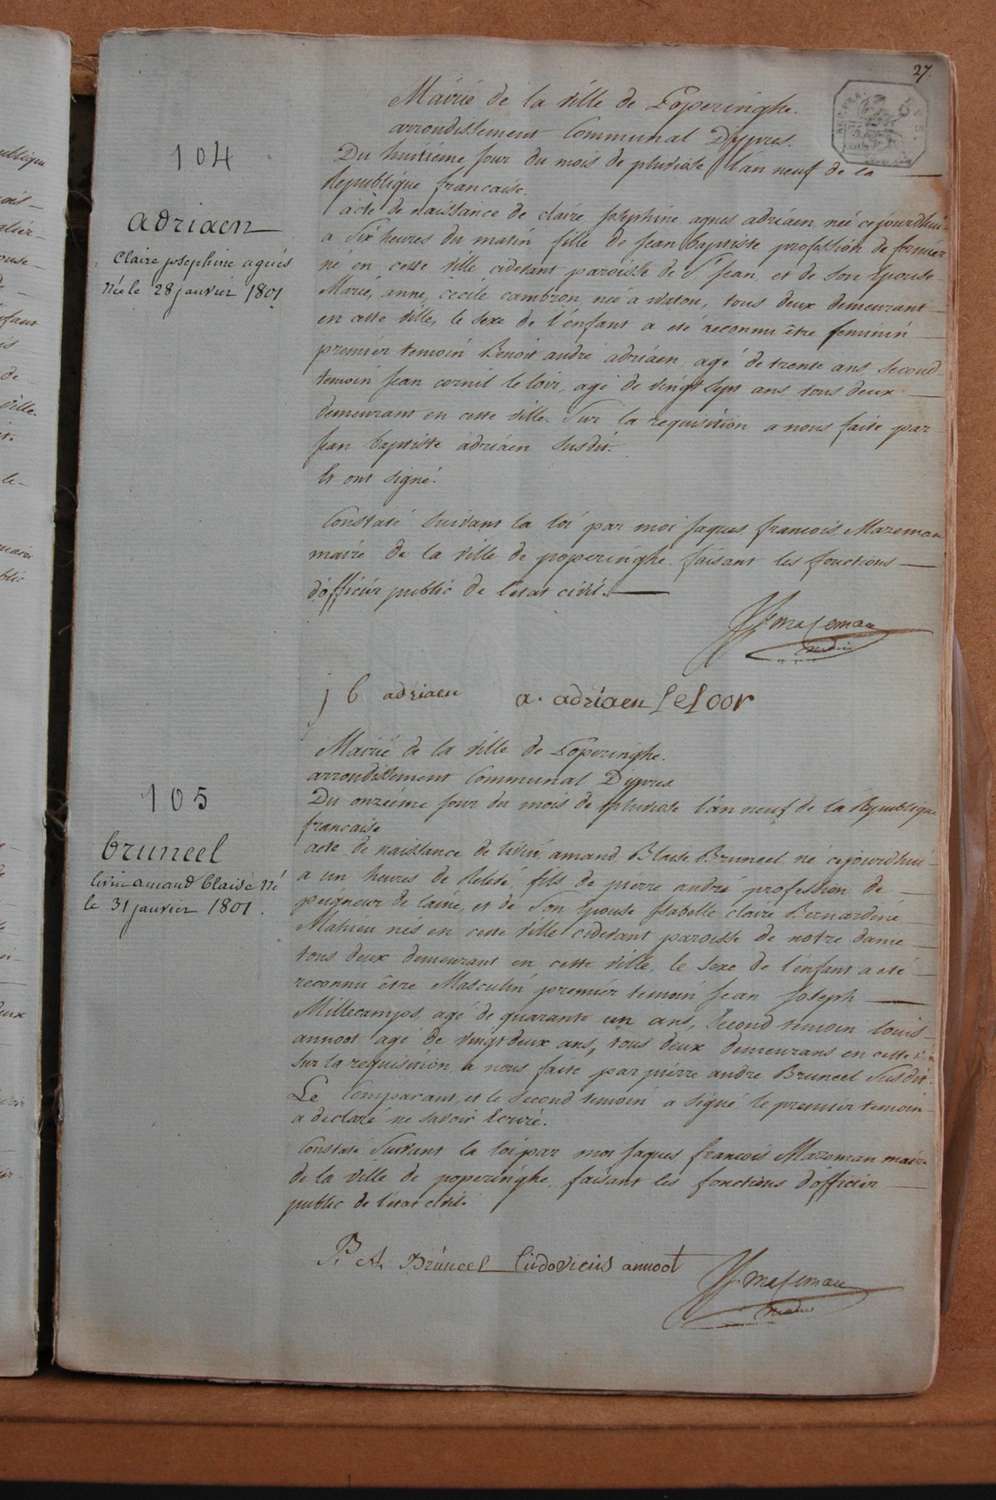 27.
Mairie de la ville de Poperinghe.
arrondissement Communal D'ypres.
104
Du huitiéme jour du mois de pluviose l'an neuf de la
Republique francaise.
adriaen
Claire josephine agnés
Née le 28 janvier 1801
acte de naissance de claire Josephine agnes adriaen neé cejourdhui
a Six heures du matin fille de Jean baptiste profession de
né en cette ville cidevant paroisse de St Jean et de Son Epouse
Marie, anne, cecile cambron, neé a watou, tous deux demeurant
en cette ville, le Sexe de l'enfant a eté reconnu être feminin
premier temoin Benoit andré adriaen agé de trente ans Second
temoin Jean cornil le loir, agé de vingt Sept ans tous deux
demeurant en cette ville. Sur la requisition a nous faite par
Jean baptiste adriaen Susdit.
Et ont signé.
Constaté Suivant la loi par moi Jaques francois Mazeman
maire de la ville de poperinghe faisant les fonctions
d'officier public de l'etat civil.
JF mazeman
maire
j b adriaen a. adriaen
Mairie de la ville de Poperinghe.
arrondissement Communal D'ypres
105
Du onziéme jour du mois de pluviose l'an neuf de la Republique
francaise
bruneel
livin amand blaise Né
le 31 janvier 1801.
acte de naissance de livin amand Blaise Bruneel né cejourdhui
a un heures de fils de pierre andré profession de
peigneur de laine, et de Son Epouse Isabelle claire Bernardine
Mahieu nés en cette ville cidevant paroisse de notre dame
tous deux demeurant en cette ville, le Sexe de l'enfant a eté
reconnu être Masculin premier temoin Jean Joseph
Millecamps, agé de quarante un ans, Second temoin louis
annoot agé de vingt deux ans, tous deux demeurans en cette
Sur la requisition a nous faite par pierre andre Bruneel Susdit.
Le Comparant et le Second temoin a signé le premier temoin
a declaré ne Savoir Ecrire.
Constaté Suivant la loi par moi Jaques francois Mazeman maire
de la ville de poperinghe faisant les fonctions d'officier
public de l'etat civil.
P. A. Brúneel ludovicus annoot
JF mazeman
maire